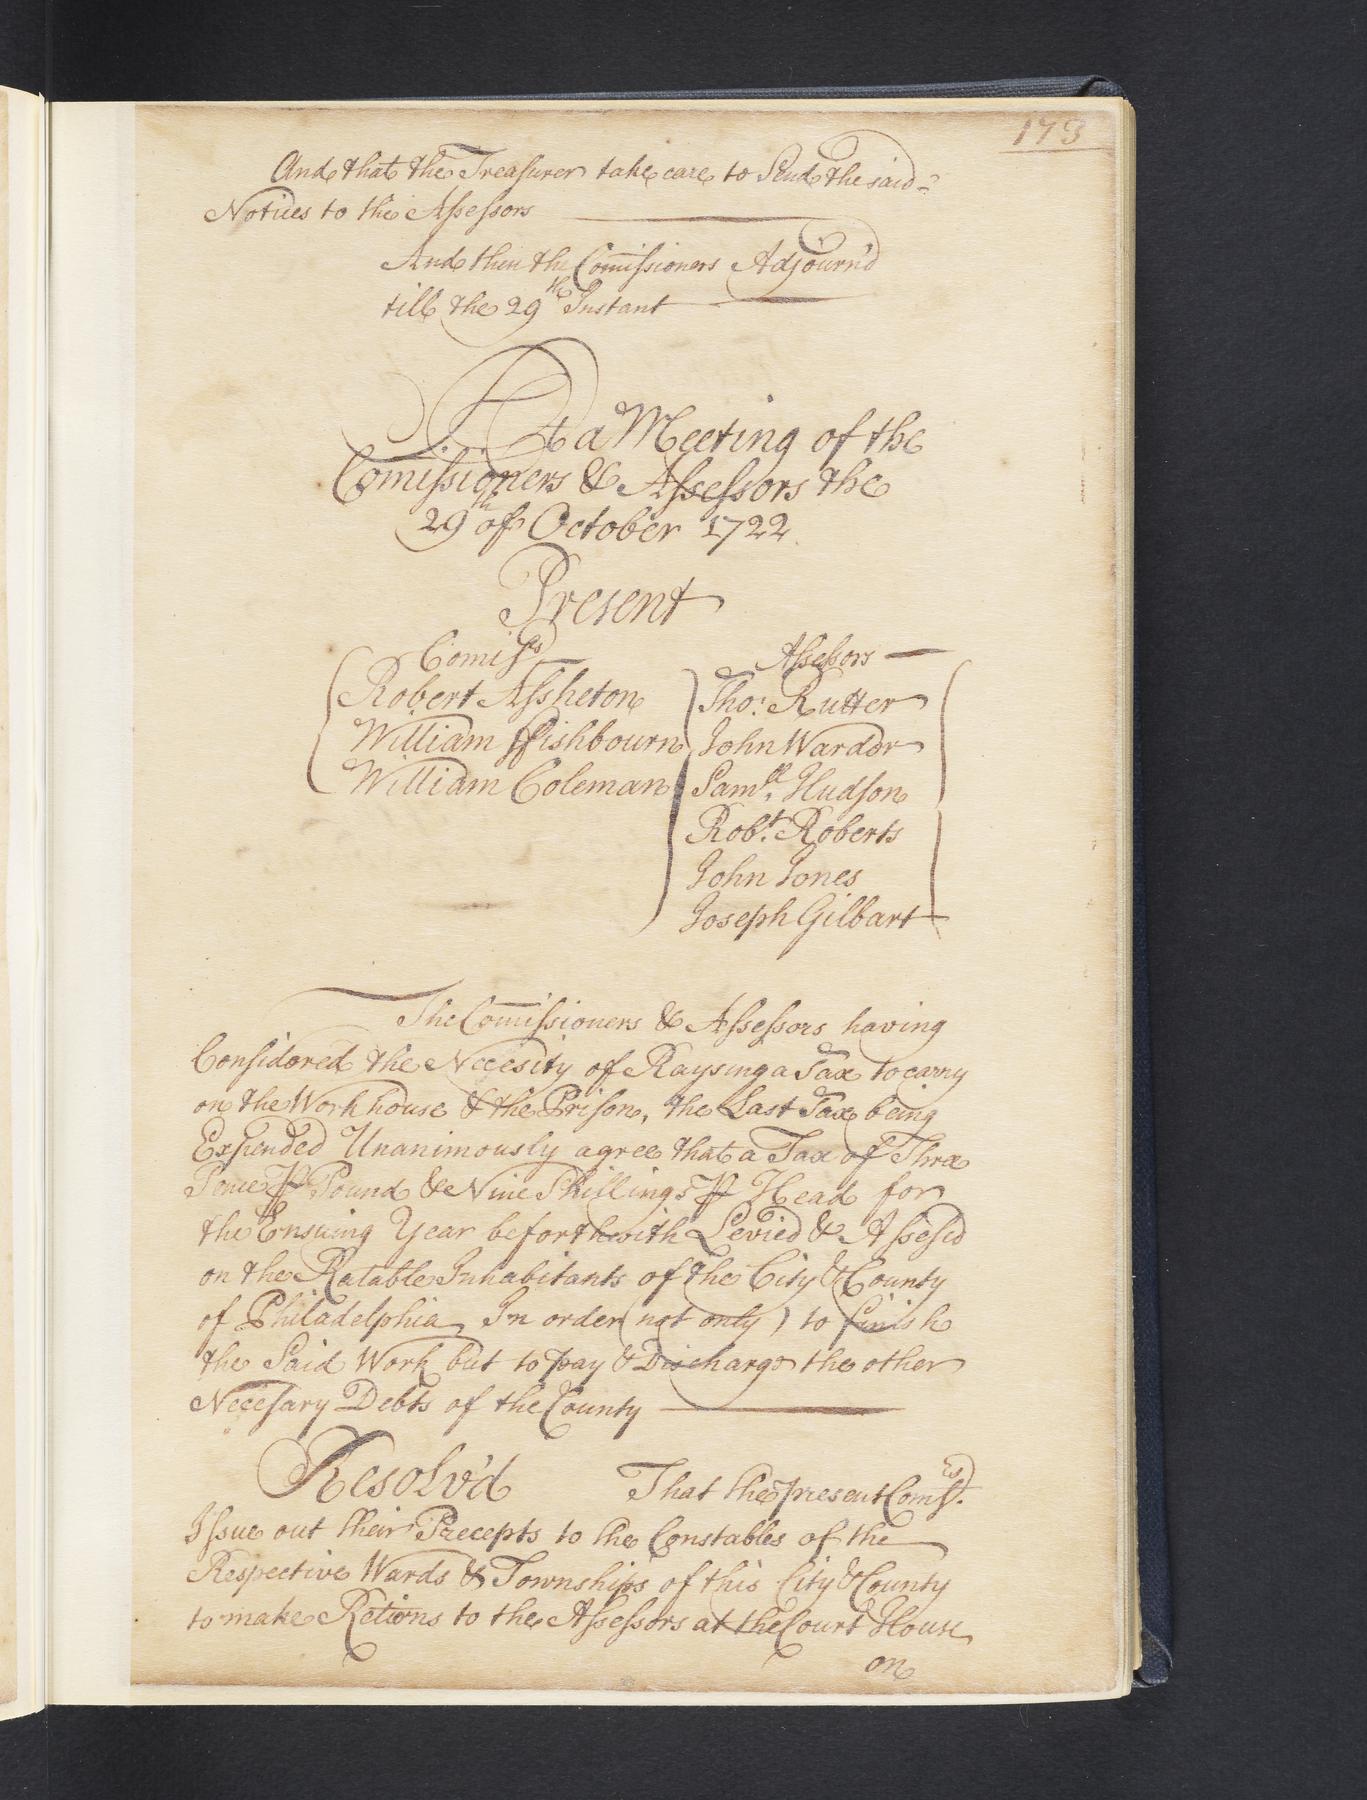 173
And that the Treasurer take care to Send the said
Notices to the Assessors
And then the Comissioners Adjourn'd
till the 29th Instant
At a Meeting of the
Comissioners & Assessors the
29th of October 1722
Present
Comiss
Robert Assheton
William Ffishbourn
William Coleman
Assessors
Tho: Rutter
John Warder
Samll. Hudson
Robt. Roberts
John Jones
Joseph Gilbart
The Comissioners & Assessors having
Considered the Necesity of Raysing a Tax to carry
on the Workhouse & the Prison, the Last Tax being
Expended Unanimously agree that a Tax of Three
Pence P Pound & Nine Shillings P Head for
the Ensuing Year be forthwith Levied & Assess'd
on the Ratable Inhabitants of the City & County
of Philadelphia, In order (not only) to finish
the Said Work but to pay & Discharge the other
Necessary Debts of the County
Resolv'd That the present Comissrs.
Issue out their Precepts to the Constables of the
Respective Wards & Townships of this City & County
to make Returns to the Assessors at the Court House
on